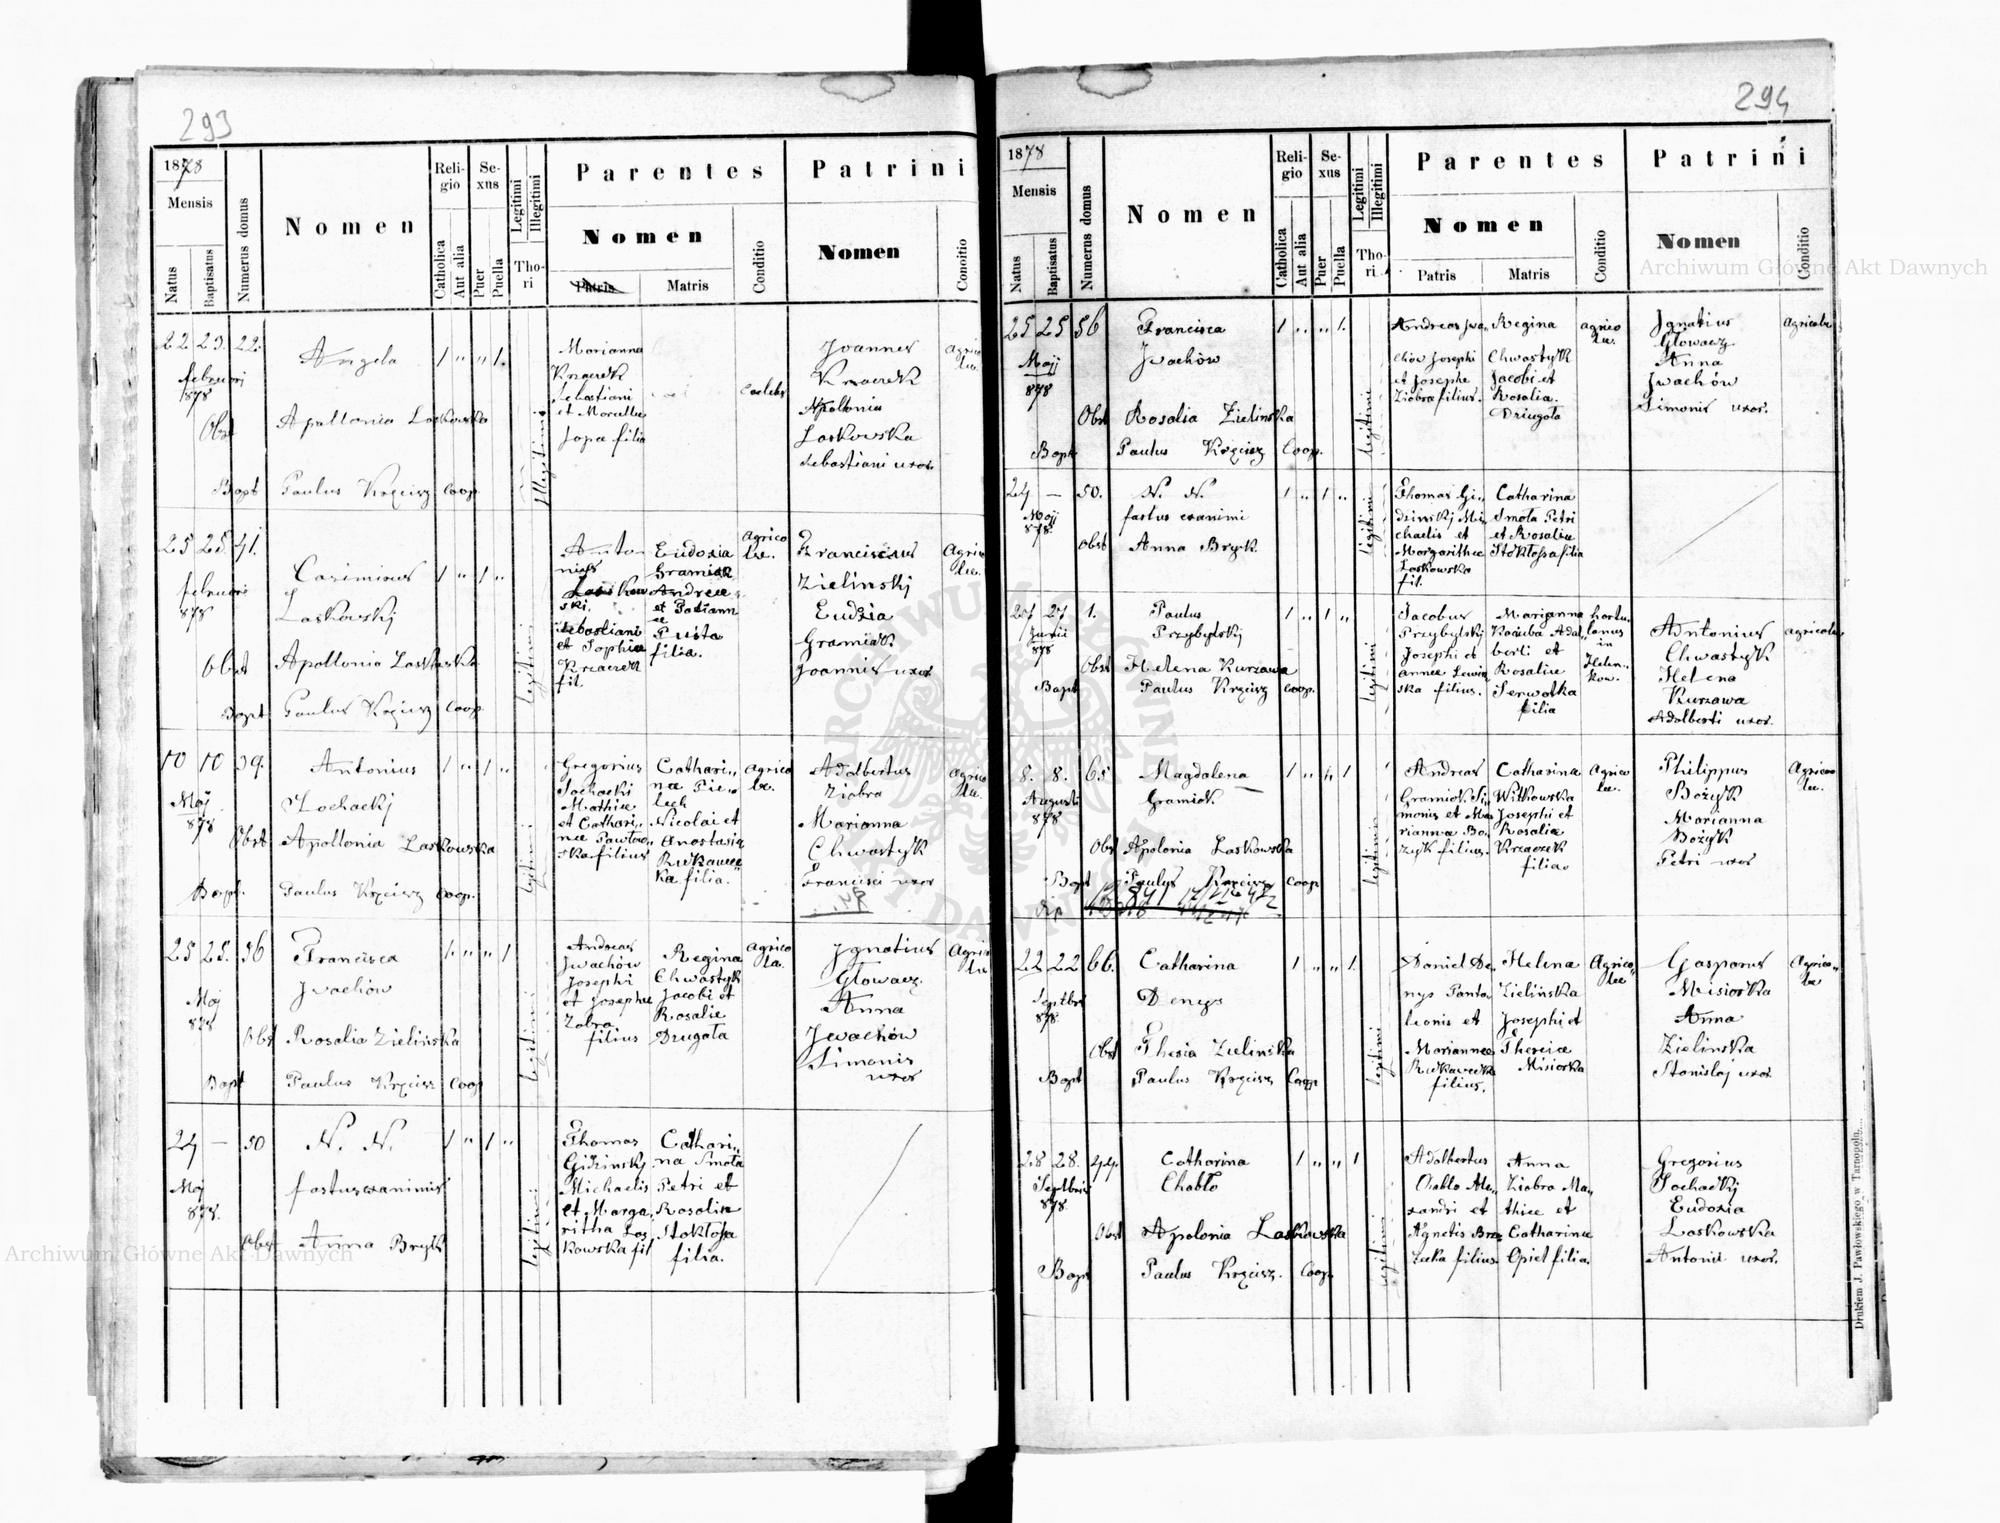 293
1878
Mensis
Natus
Baptisatus
Numerus domus
Nomen
Religio
Catholica
Aut alia
Sexus
Puer
Puella
Legitimi
Illegitimi
Thori
Parentes
Nomen
Patris
Matris
Conditio
Patrini
Nomen
Conditio
22. 23. 22.
februarj
878
Angela
1 " " 1.
Illegitimi
Marianna
Krzaczek
Sebastiani
et Marcellae
Sopa filia
Joannes
Krzaczek
Apollonia
Laskowska
Sebastiani uxor
Agricolae.
Obst Apollonia Laskowska
Bapt Paulus Krzcisz Coop.
25 25 41.
februari
878
Casimirus
Laskowskj
1 " 1 "
legitimi
Antonius
Laskowski.
Sebastiani
et Sophiae
Krzaczek
fil.
Eudoxia
Gramiak
Andreae
et Tatiannae
Pusta
filia.
Agricolae.
Franciscus
Zielinskj
Eudxia
Gramiak
Joannis uxor
Agricolae.
Obst Apollonia Laskowska
Bapt Paulus Krzcisz Coop.
10 10 39.
Maj
878
Antonius
Sochackj
1 " 1 "
legitimi
Gregorius
Sochacki
Mathiae
et Catharinae
Pawłowska filius
Catharina
Pielech
Nicolai et
Anastasia
Rękawecka
filia.
Agricolae.
Adalbertus
Ziobro
Marianna
Chwastyk
Francisci uxor
Agricolae.
Obst Apollonia Laskowska
Bapt. Paulus Krzcisz Coop.
25 25. 56
Maj
878
Francisca
Jwachów
1. " " 1
legitimi
Andreas
Jwachów
Josephi
et Josephae
Zobra
filius
Regina
Chwastyk
Jacobi et
Rosalie
Drugała
Agricola.
Jgnatius
Głowacz
Anna
Jwachów
Simonis
uxor
Agricolae
Obst Rosalia Zielińska
Bapt Paulus Krzcisz Coop
24 — 50
Maj
878.
N. N.
fastus exanimis
1 " 1 "
legitimi
Thomas
Giżinskj
Michaelis
et Margaritha
Laskowska fil
Catharina
Smoła
Petri et
Rosaliae
Stokłosa
filia.
Obst Anna Bryk
294
1878
Mensis
Natus
Baptisatus
Numerus domus
Nomen
Religio
Catholica
Aut alia
Sexus
Puer
Puella
Legitimi
Illegitimi
Thori
Parentes
Nomen
Patris
Matris
Conditio
Patrini
Nomen
Conditio
25 25 56
Majj
878
Francisca
Jwachów
1 " " 1.
legitimi
Andreas Jwachów
Josephi
et Josephe
Ziobra filius.
Regina
Chwastyk
Jacobi et
Rosalia.
Driugała
Agricolae.
Jgnatius
Głowacz
Anna
Jwachów
Simonis uxor.
Agricolae
Obst Rosalia Zielinska
Bapt Paulus Krzcisz Coop.
24 — 50.
Majj
878.
N. N.
fastus exanimi
1 " 1 "
legitimi
Catharina
Smoła Petri
et Rosaliae
Stokłosa filia
Obst Anna Bryk.
27 27 1.
Junii
878
Paulus
Przybylskj
1 " 1 "
legitimi
Jacobus
Przybylskj
Josephi et
annae Lewinska
filius.
Marianna
Kociuba Adalberti
et
Rosaliae
Serwatka
filia
hortulanus
in
Helenkow.
Antonius
Chwastyk
Helena
Kurzawa
Adalberti uxor.
agricolae
Obst Helena Kurzawa
Bapt Paulus Krzcisz Coop.
8. 8. 65
Augusti
878
Magdalena
Gramiak.
1 " " 1
legitimi
Andreas
Gramiak Simonis
et Marianna
Bożyk filius.
Catharina
Witkowska
Josephi et
Rosaliae
Krzaczek
filia.
Agricolae.
Philippus
Bożyk
Marianna
Bożyk
Petri uxor
Agricolae.
Obst Apolonia Laskowska
Bapt Paulus Krzcisz Coop
22 22 66.
Septbris
878.
Catharina
Denys
1 " " 1.
legitimi
Daniel Denys
Pantaleonis
et
Mariannae
Rękawecka
filius.
Helena
Zielińska
Josephi et
Theresiae
Misiorka
Agricolae
Gasparus
Misiorka
Anna
Zielinska
Stanislaj uxor.
Agricolae
Obst Thesia Zielinska
Bapt Paulus Krzcisz Coop
28 28. 44.
Septbris
878.
Catharina
Chabło
1 " " 1
legitimi
Adalbertus
Chabło Alexandri
et
Agnetis
filius.
Anna
Ziobro Mathiae
et
Catharinae
Opiet filia.
Gregorius
Sochackj
Eudoxia
Laskowska
Antonii uxor.
Obst Apolonia Laskowska
Bapt Paulus Krzcisz. Coop.
Drukiem J. Pawłowskiego w Tarnopolu.
Archiwum Główne Akt Dawnych
Archiwum Główne Akt Dawnych
ARCHIWUM GŁÓWNE AKT DAWNYCH